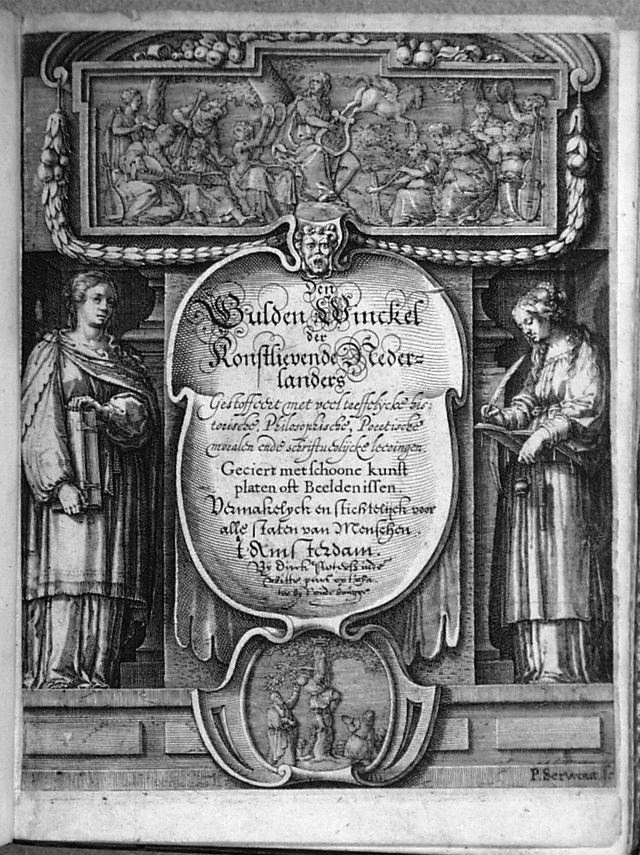 Den
Gulden Winckel
der
Konstlievende Neder-
landers
Gestoffeert met veel treffelycke his-
torische, Philosophische, Poetische
moralen ende schriftuerlijcke leeringen.
Geciert met schoone kunst
platen oft Beeldenissen.
Vermakelyck en stichtelijck voor
alle staten van Menschen.
t'Amsterdam.
By Dirck
Witte
P. Serwout